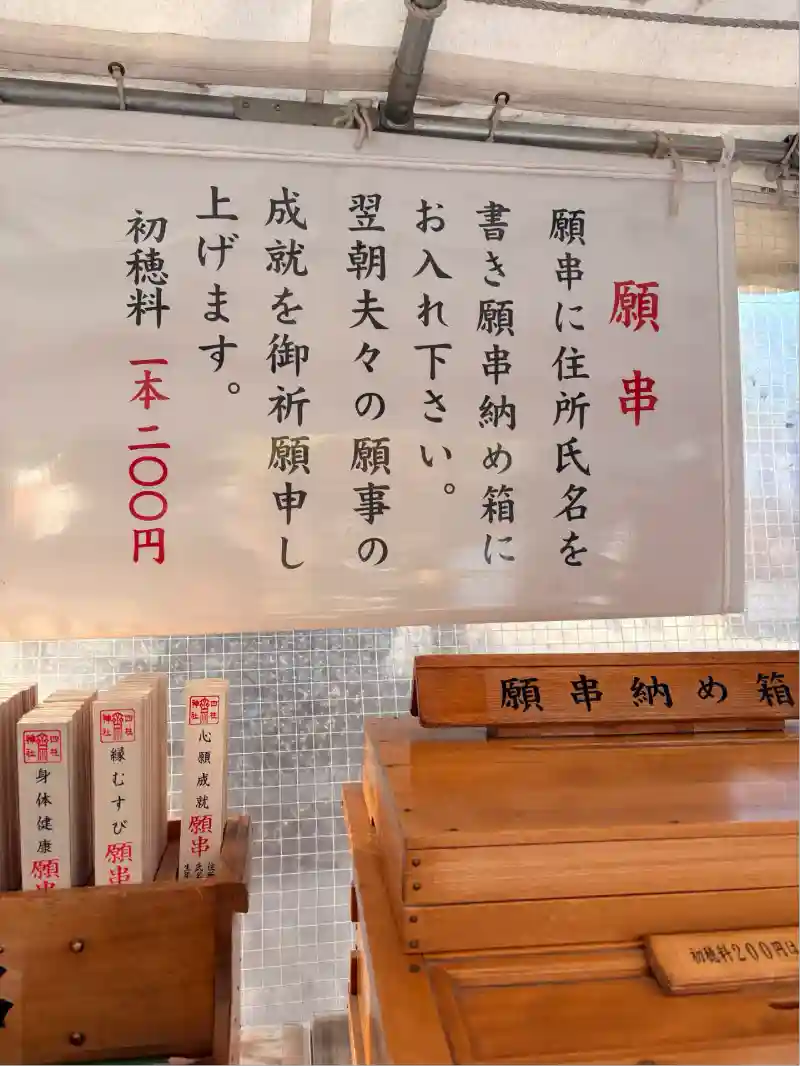 願串
願串に住所氏名を
書き願串納め箱に
お入れ下さい。
翌朝夫々の願事の
成就を御祈願申し
上げます。
初穂料 一本 二〇〇円
願串納め箱
四柱神社
心願成就
願串
四柱神社
縁むすび
願串
四柱神社
身体健康
願串
初穂料200円は